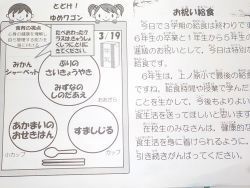 とどけ!
ゆめワゴン
食べおわったら
クラスはきゅうしょ
くしつにとりに
きてください。
3/19
みかん
シャーベット
ぶりの
さいきょうやき
みずなの
しのだあえ
あかまいの
おせきはん
すましじる
小カップ
大カップ
お祝い給食
今日で3学期の給食は終わりで
6年生の卒業と1年生から5年生の
進級のお祝いとして、今日は特別
な給食です。
6年生は、上ノ原小で最後の給
ですね。給食時間や授業で学んだ
ことを生かして、今後もよりよい
食生活を送ってほしいと思います
在校生のみなさんは、健康的な
食生活を身に着けられるように、
引き続きがんばってください。